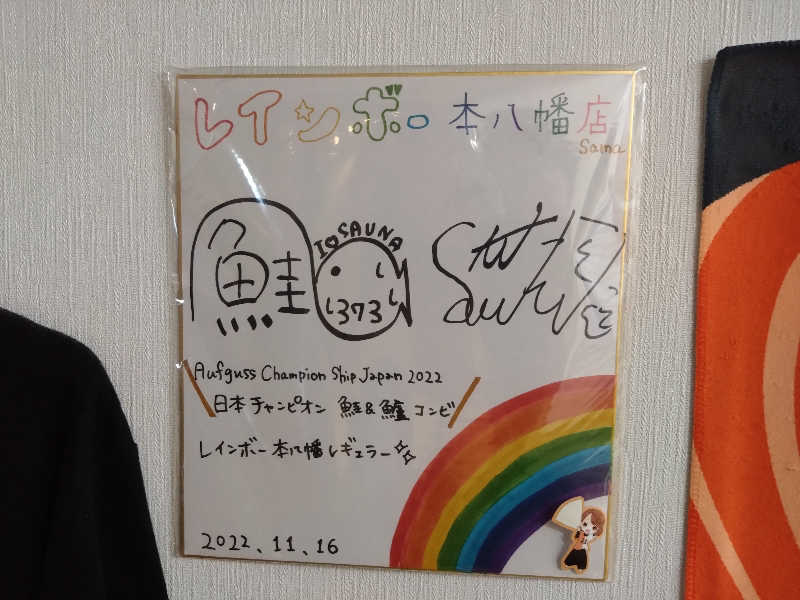 レインボー 本八幡店
Sauna
鮭
I♡SAUNA
373
Aufguss Champion Ship Japan 2022
日本チャンピオン 鮭&鱸コンビ
レインボー本八幡レギュラー
2022.11.16